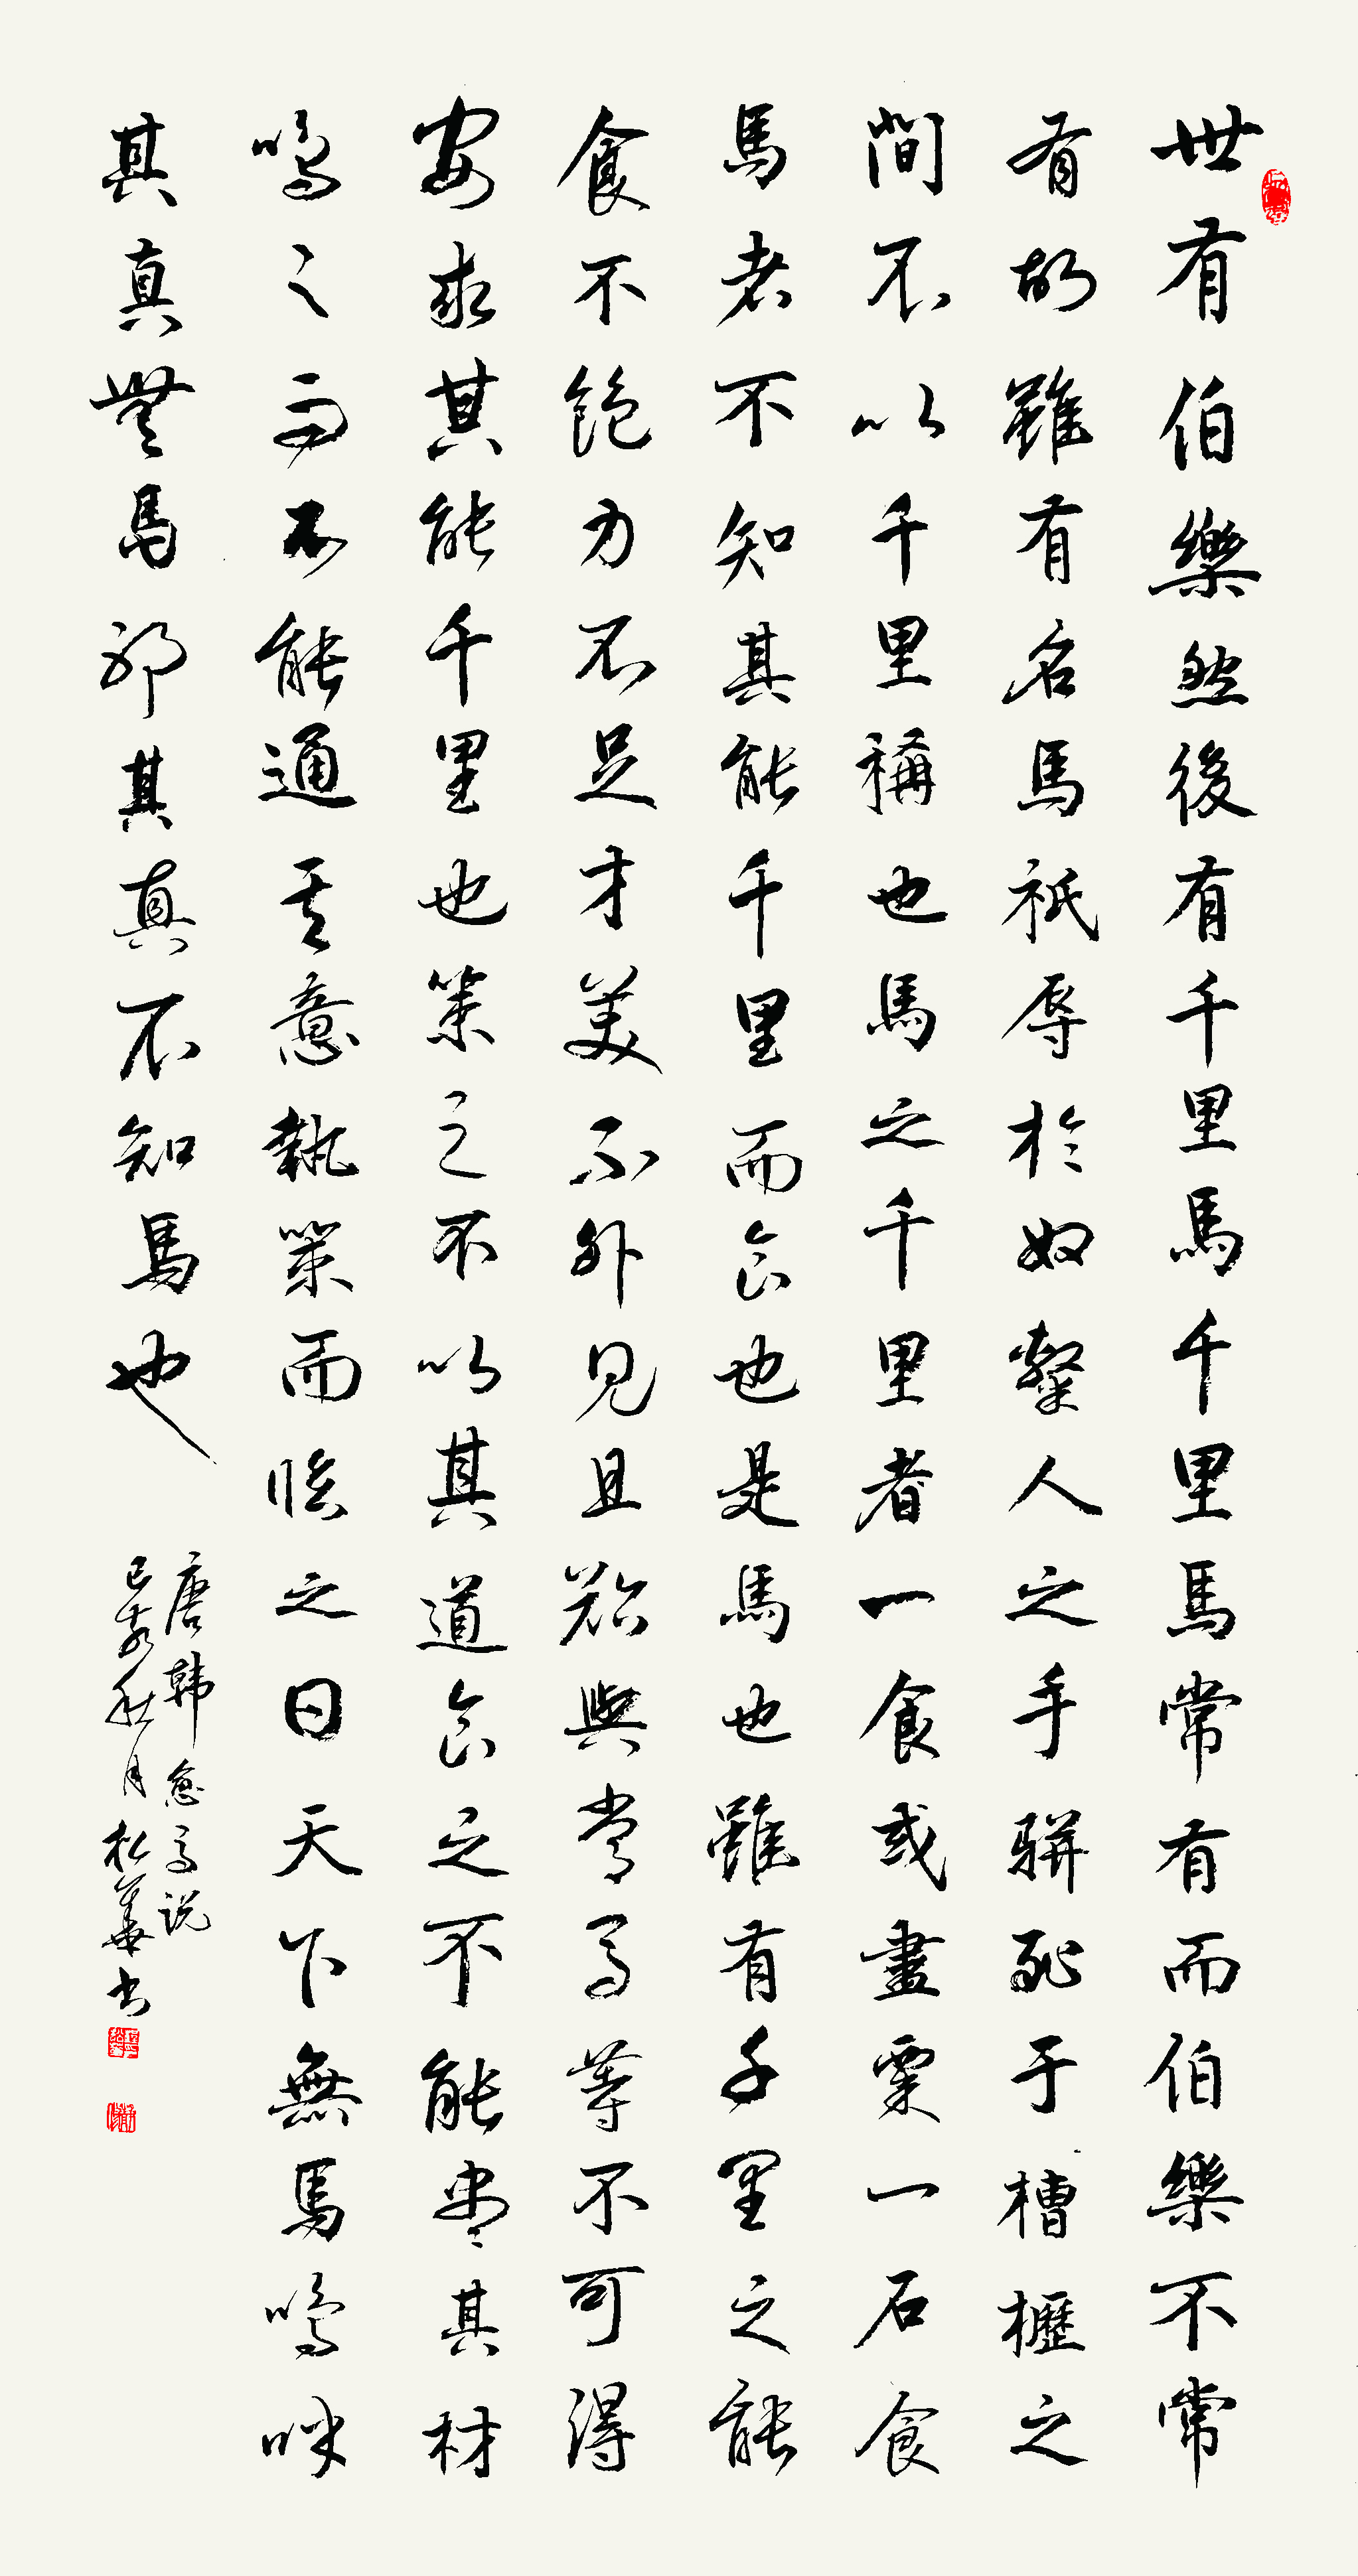 世有伯樂然後有千里馬千里馬常有而伯樂不常
有故雖有名馬祇辱於奴隸人之手駢死于槽櫪之
間不以千里稱也馬之千里者一食或盡粟一石食
馬者不知其能千里而食也是馬也雖有千里之能
食不飽力不足才美不外見且欲與常馬等不可得
安求其能千里也策之不以其道食之不能盡其材
鳴之而不能通其意執策而臨之曰天下無馬嗚呼
其真無馬邪其真不知馬也
唐韩愈马说
己亥秋月松華书